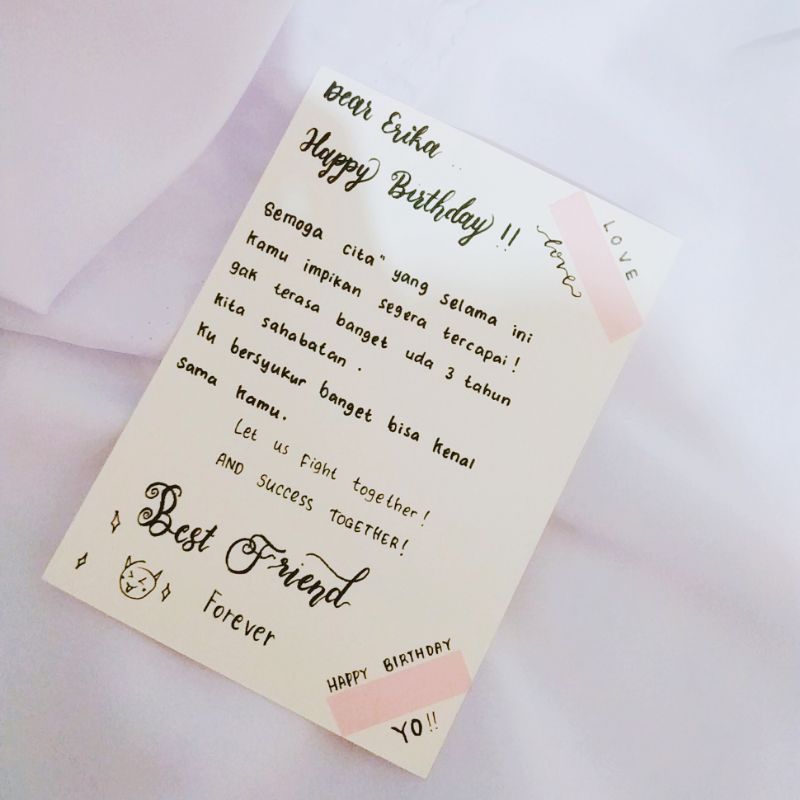 Dear Erika
Happy Birthday !!
LOVE
love
Semoga cita" yang selama ini
kamu impikan segera tercapai!
gak terasa banget uda 3 tahun
kita sahabatan.
Ku bersyukur banget bisa kenal
sama kamu.
Let us fight together!
AND SUCCESS TOGETHER!
Best Friend
Forever
HAPPY BIRTHDAY
YO!!